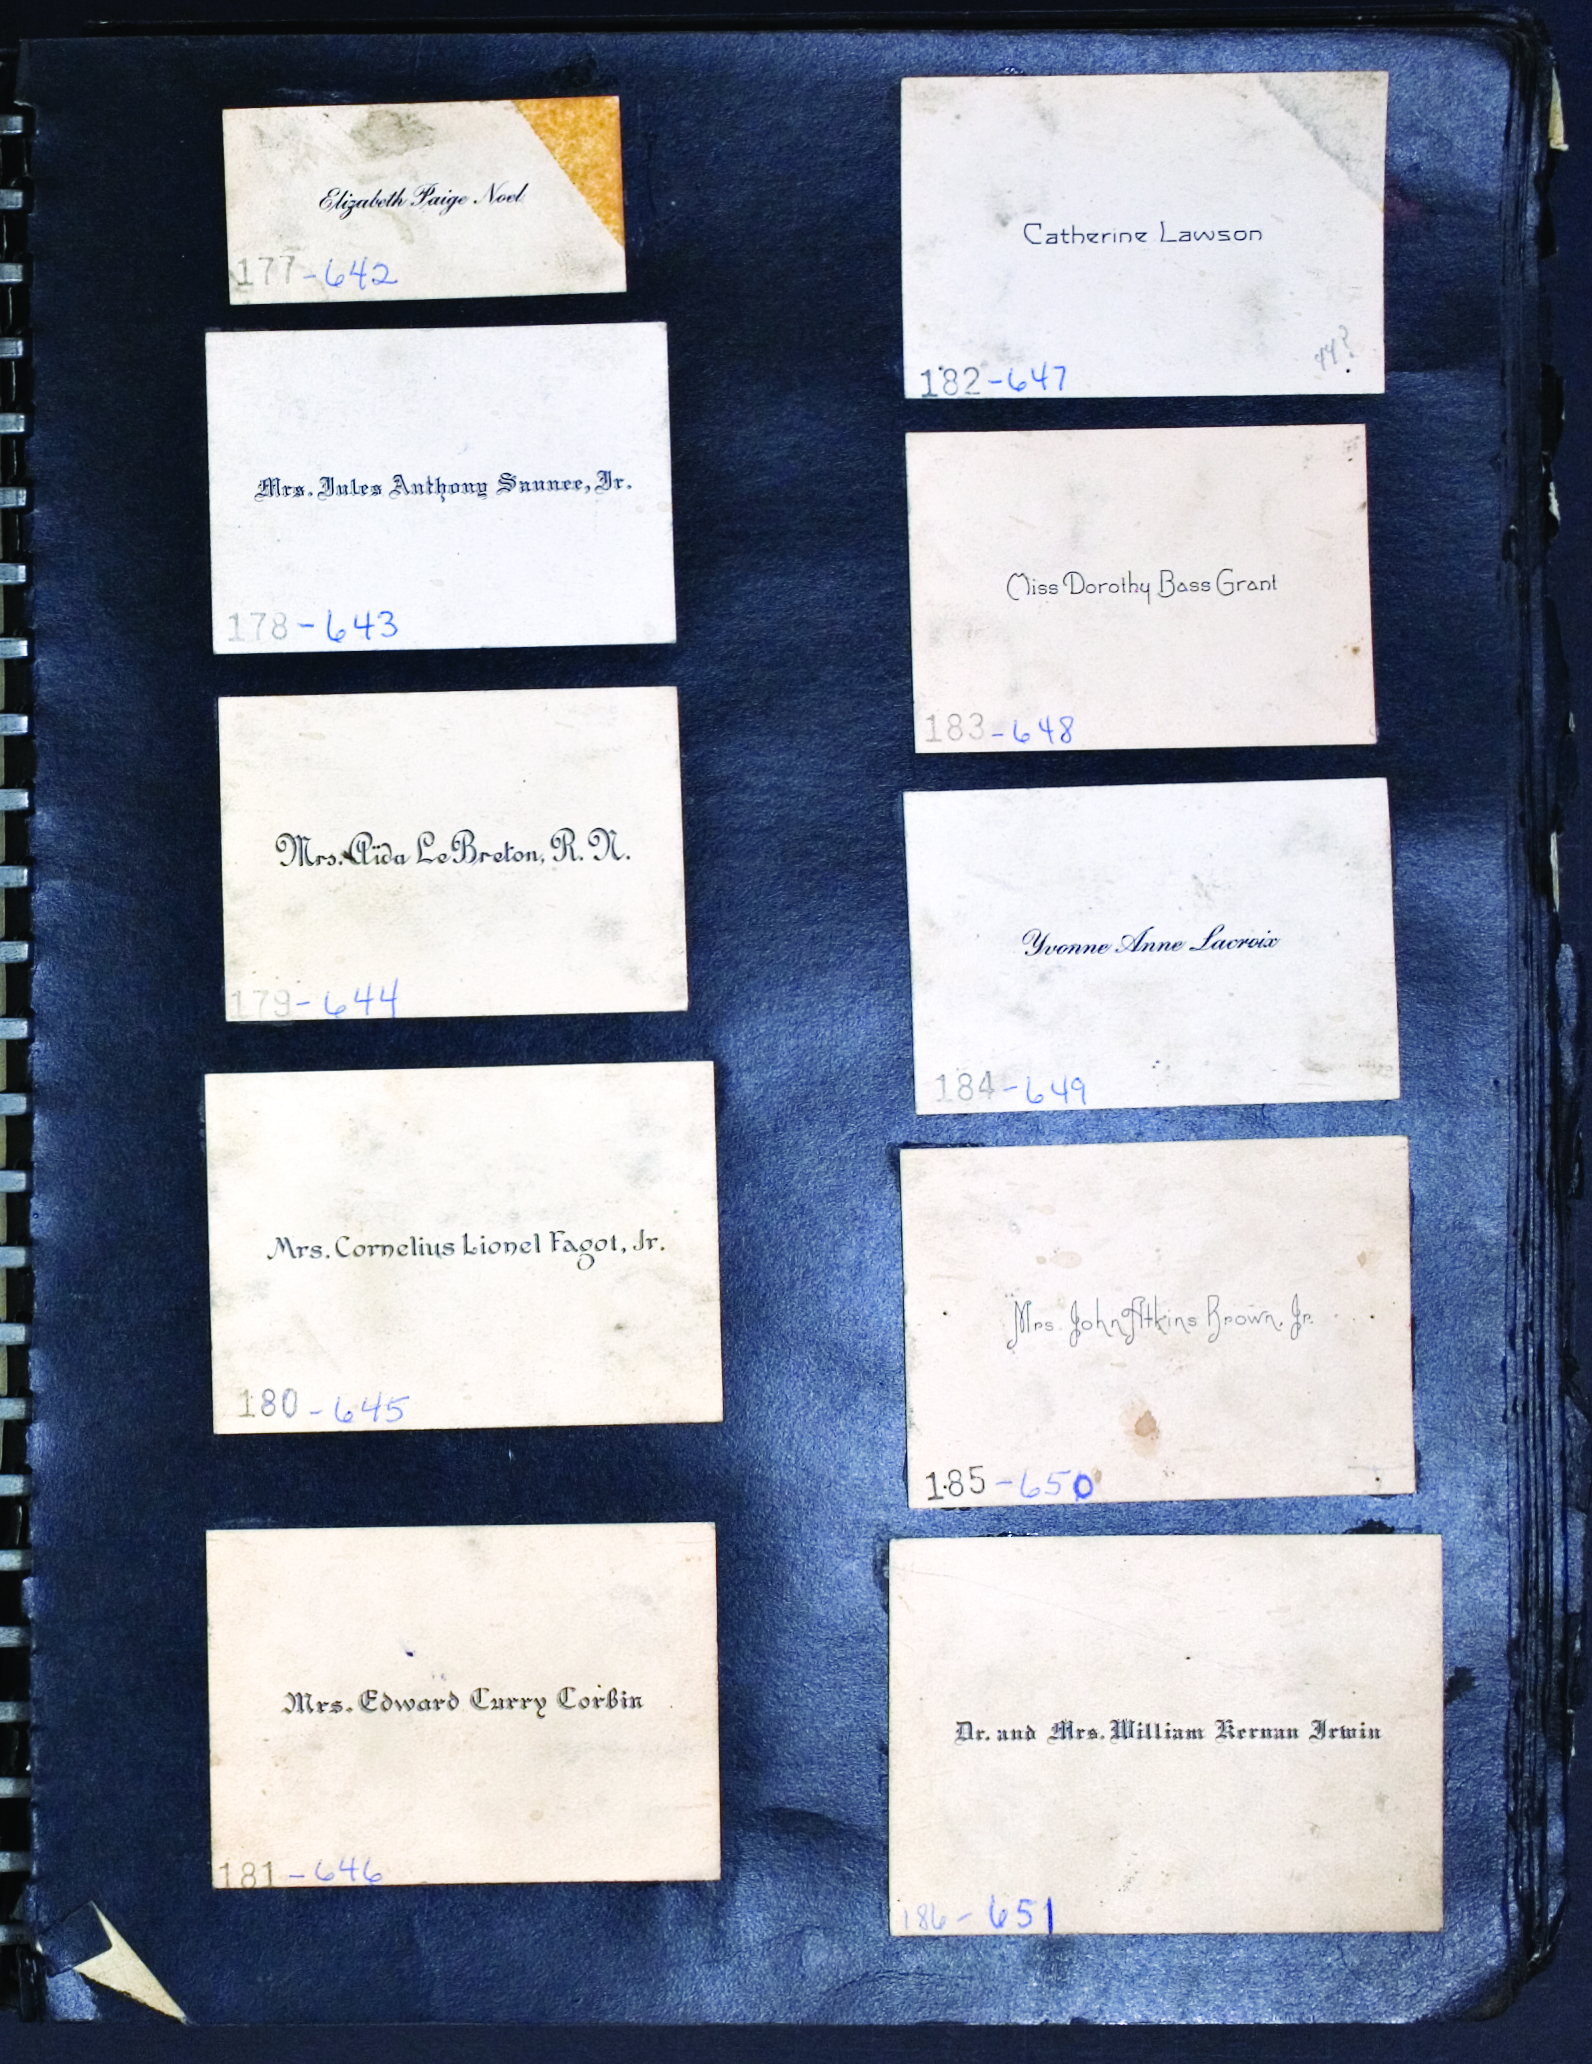 Elizabeth Paige Noel
177-642
Mrs. Jules Anthony Saunee, Jr.
178-643
Mrs. Aïda LeBreton, R. N.
179-644
Mrs. Cornelius Lionel Fagot, Jr.
180-645
Mrs. Edward Curry Corbin
181-646
Catherine Lawson
44?
182-647
Miss Dorothy Bass Grant
183-648
Yvonne Anne Lacroix
184-649
Mrs. John Atkins Brown, Jr.
185-650
Dr. and Mrs. William Kernan Irwin
186-651